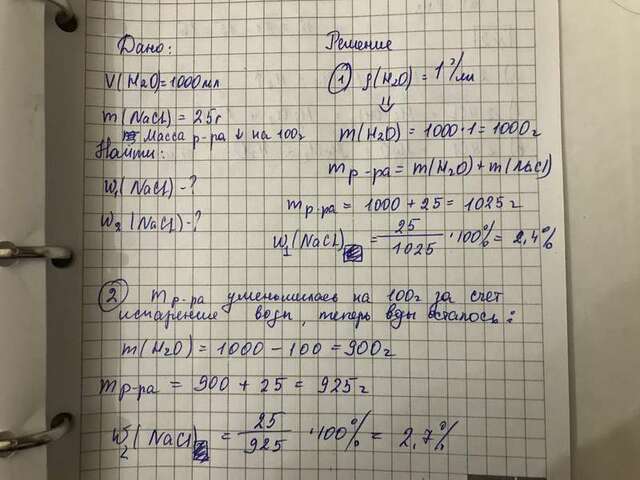 Дано:
V(H2O)=1000мл
m(NaCl)=25г
Масса р-ра ↓ на 100г
Найти:
W1(NaCl)-?
W2(NaCl)-?
Решение
① ρ(H2O) = 1 г/мл
⇓
m(H2O) = 1000·1 = 1000г
mр-ра = m(H2O)+m(NaCl)
mр-ра = 1000 + 25 = 1025 г
W1(NaCl) = 25/1025 ·100% = 2,4%
② mр-ра уменьшилась на 100г за счет
испарение воды, теперь вды осталось:
m(H2O) = 1000 - 100 = 900г
mр-ра = 900 + 25 = 925г
W2(NaCl) = 25/925 ·100% = 2,7%